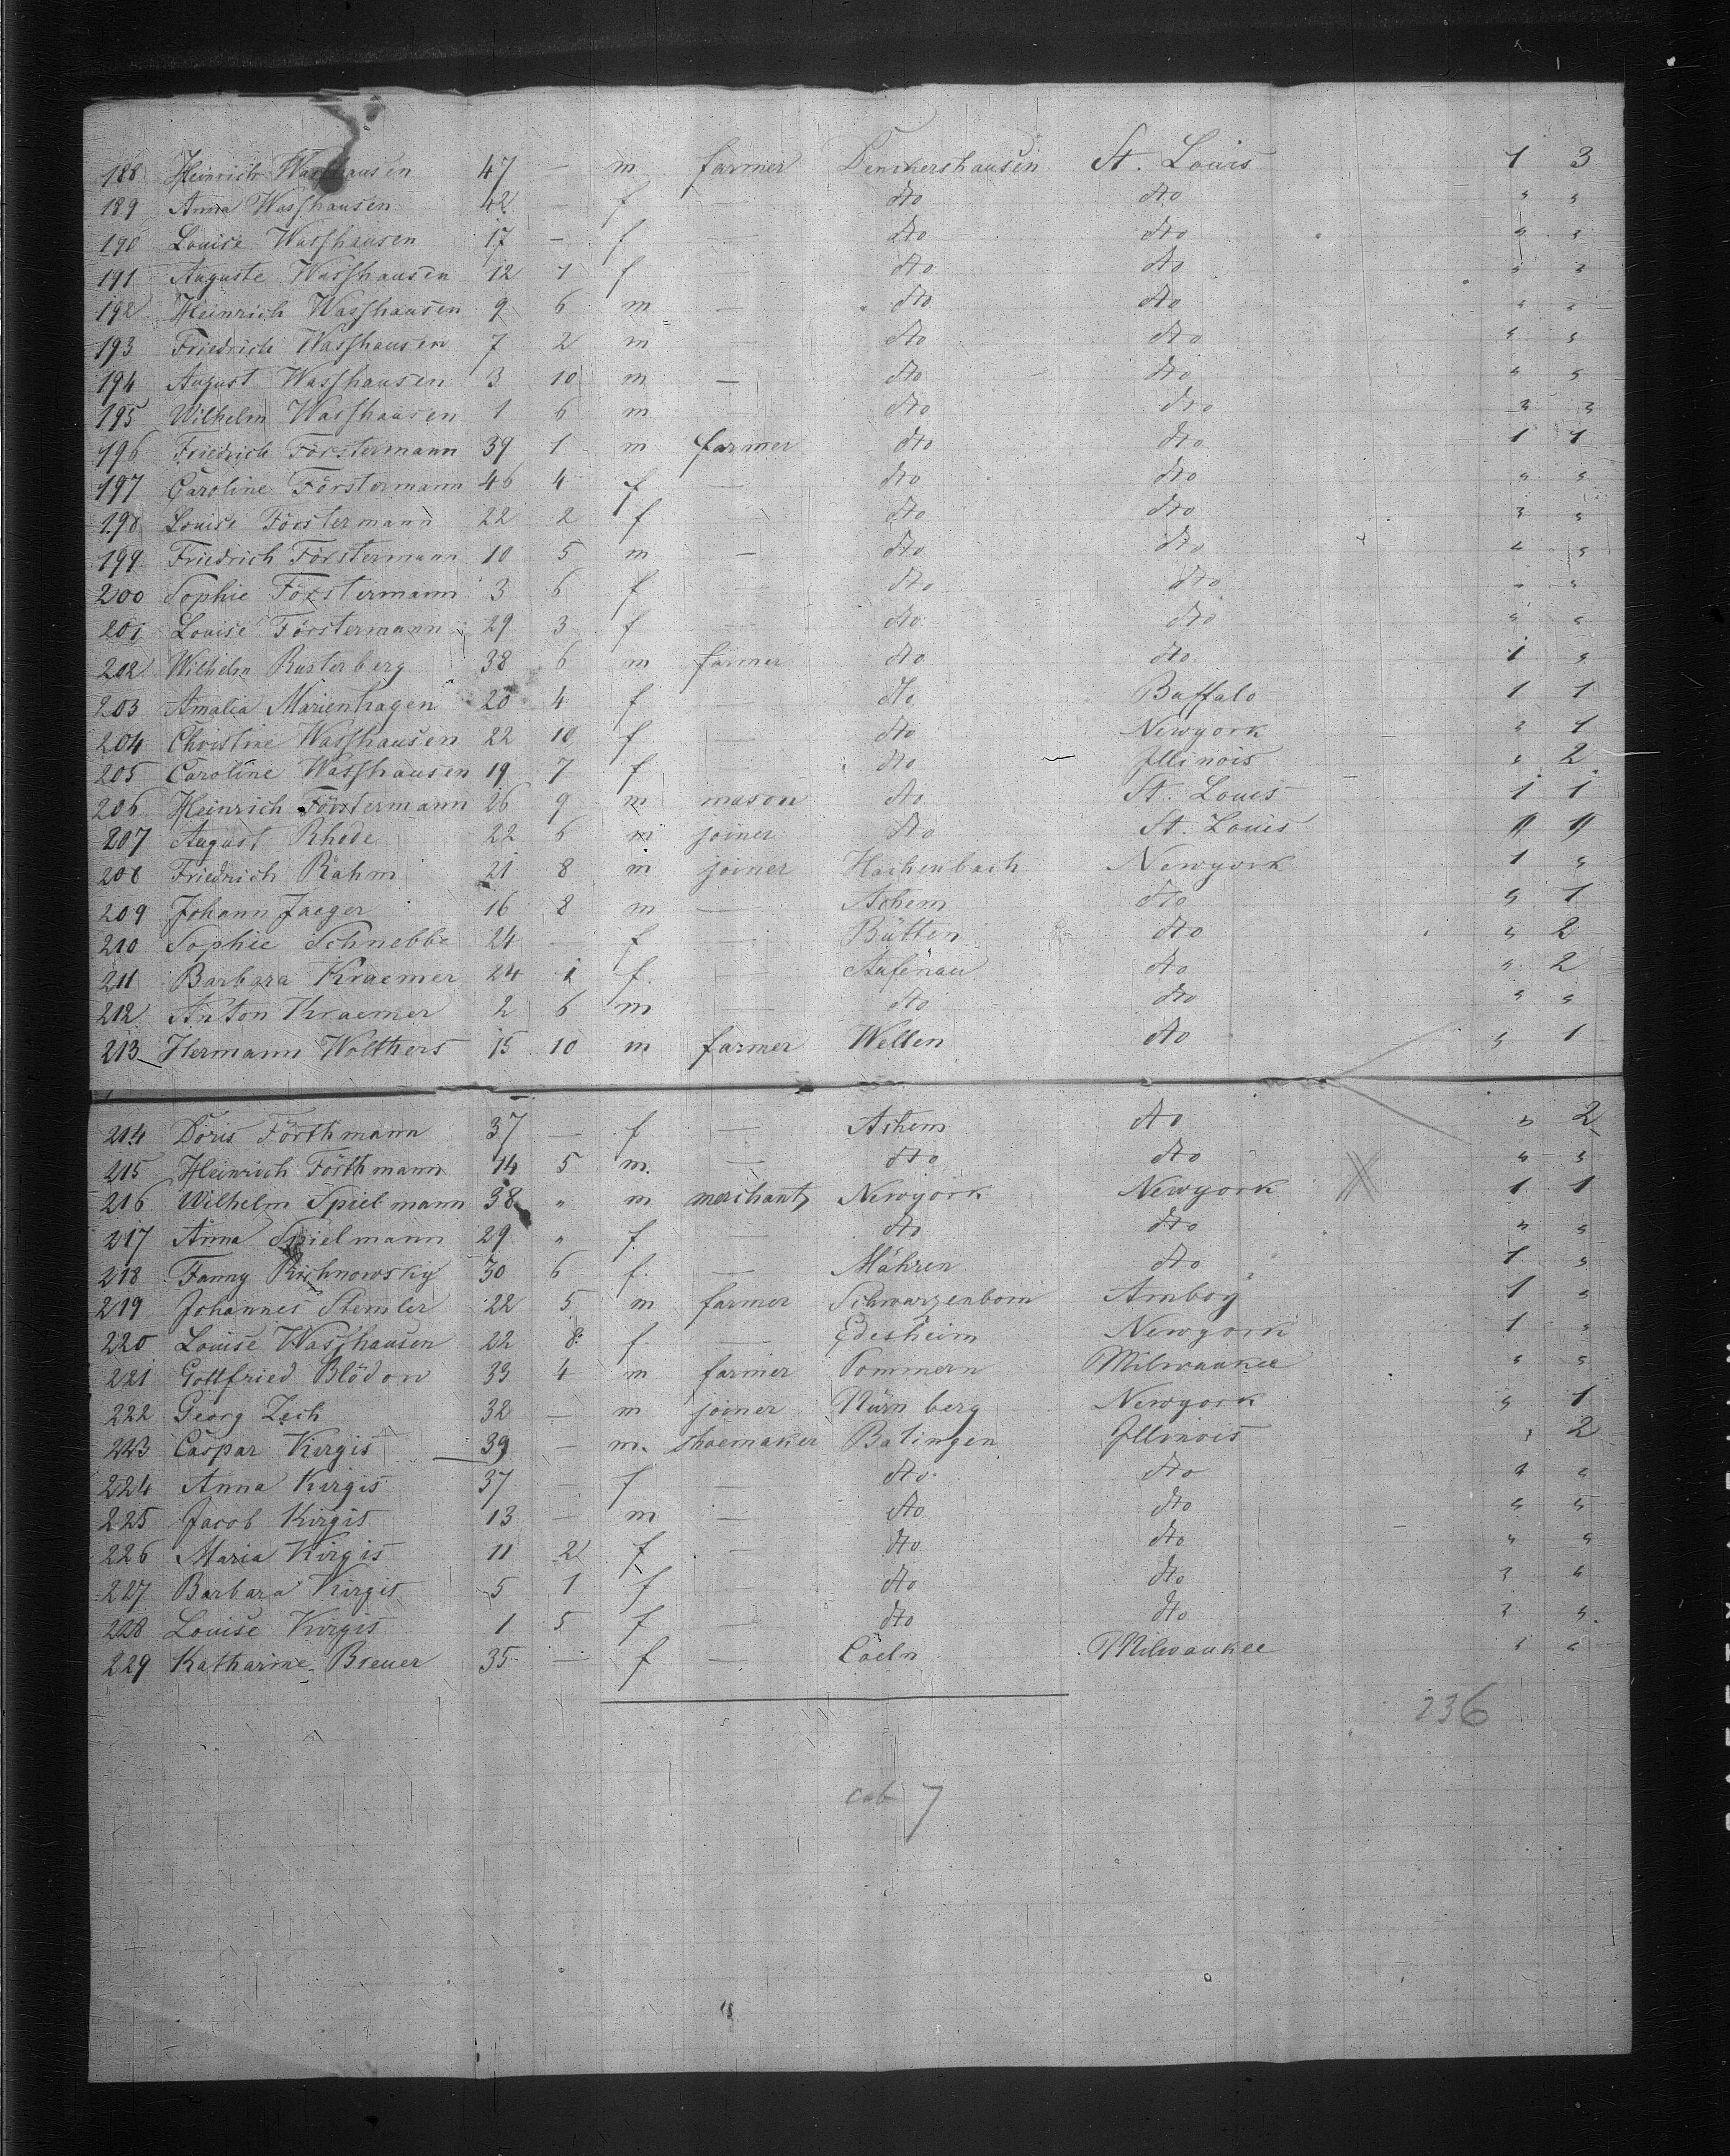 188 Heinrich Wasshausen 47 — m farmer Denkershausen St. Louis 1 3
189 Anna Wasshausen 42 — f dto dto " "
190 Louise Wasshausen 17 — f — dto dto " "
191 Auguste Wasshausen 12 1 f dto dto " "
192 Heinrich Wasshausen 9 6 m — dto dto " "
193 Friedrich Wasshausen 7 2 m — dto dto " "
194 August Wasshausen 3 10 m — dto dto " "
195 Wilhelm Wasshausen 1 6 m dto dto " "
196 Friedrich Förstermann 39 1 m farmer dto dto 1 1
197 Caroline Förstermann 46 4 f — dto dto " "
198 Louise Förstermann 22 2 f dto dto " "
199 Friedrich Förstermann 10 5 m — dto dto " "
200 Sophie Förstermann 3 6 f — dto dto " "
201 Louise Förstermann 29 3 f — dto dto " "
202 Wilhelm Rusterberg 38 6 m farmer dto dto 1 "
203 Amalia Marienhagen 20 4 f — dto Buffalo 1 1
204 Christine Wasshausen 22 10 f — dto Newyork " 1
205 Caroline Wasshausen 19 7 f dto Illinois " 2
206 Heinrich Förstermann 26 9 m mason dto St. Louis 1 1
207 August Rhode 22 6 m joiner dto St. Louis 1 1
208 Friedrich Rahm 21 8 m joiner Hachenbach Newyork 1 "
209 Johann Jaeger 16 8 m — Achem dto " 1
210 Sophie Schnebbe 24 — f — Bütten dto " 2
211 Barbara Kraemer 24 1 f — Aufenau dto " 2
212 Anton Kraemer 2 6 m — dto dto " "
213 Hermann Wolthers 15 10 m farmer Wellen dto " 1
214 Doris Förthmann 37 — f — Achem dto " 2
215 Heinrich Förthmann 14 5 m. — dto dto " "
216 Wilhelm Spielmann 38 " m merchant Newyork Newyork 1 1
217 Anna Spielmann 29 " f. dto dto " "
218 Fanny 30 6 f. — Mähren dto 1 "
219 Johannes Stemler 22 5 m farmer Schwarzenborn Amboy 1 "
220 Louise Wasshausen 22 8 f — Edesheim Newyork 1 "
221 Gottfried Blödow 33 4 m farmer Pommern Milwaukee " "
222 Georg Zech 32 — m joiner Nürnberg Newyork " 1
223 Caspar Kirgis 39 — m. shoemaker Balingen Illinois " 2
224 Anna Kirgis 37 — f — dto dto " "
225 Jacob Kirgis 13 — m — dto dto " "
226 Maria Kirgis 11 2 f — dto dto " "
227 Barbara Kirgis 5 1 f — dto dto " "
228 Louise Kirgis 1 5 f — dto dto " "
229 Katharine Breuer 35 — f — Coeln Milwaukee " "
236
cab 7